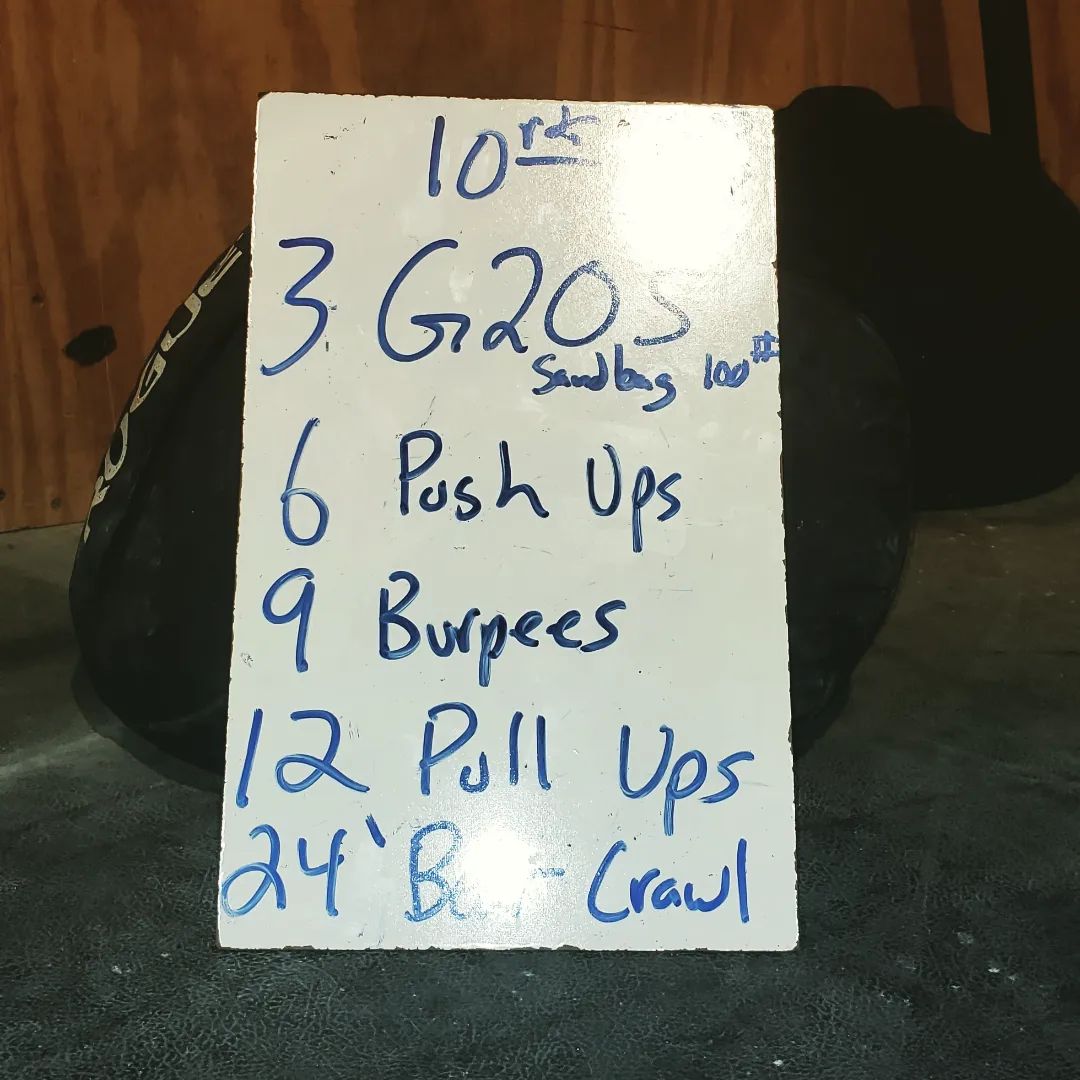 10 rds
3 G2OS
Sandbag 100#
6 Push Ups
9 Burpees
12 Pull Ups
24' Bear Crawl
ROGUE